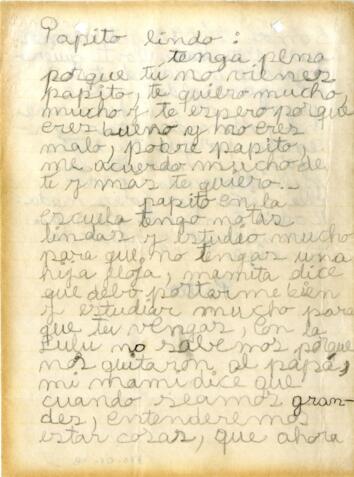 Papito lindo:
tenga pena
porque tú no vienes
papito, te quiero mucho,
mucho y te espero porque
eres bueno y no eres
malo, pobre papito,
me acuerdo mucho de
ti y mas te quiero...
papito en la
escuela tengo notas
lindas y estudio mucho
para que no tengas una
hija floja, mamita dice
que debo portarme bien
y estudiar mucho para
que tu vengas, con la
Lulu no sabemos porque
nos quitaron al papá,
mi mami dice que
cuando seamos gran-
des, entenderemos
estar cosas, que ahora